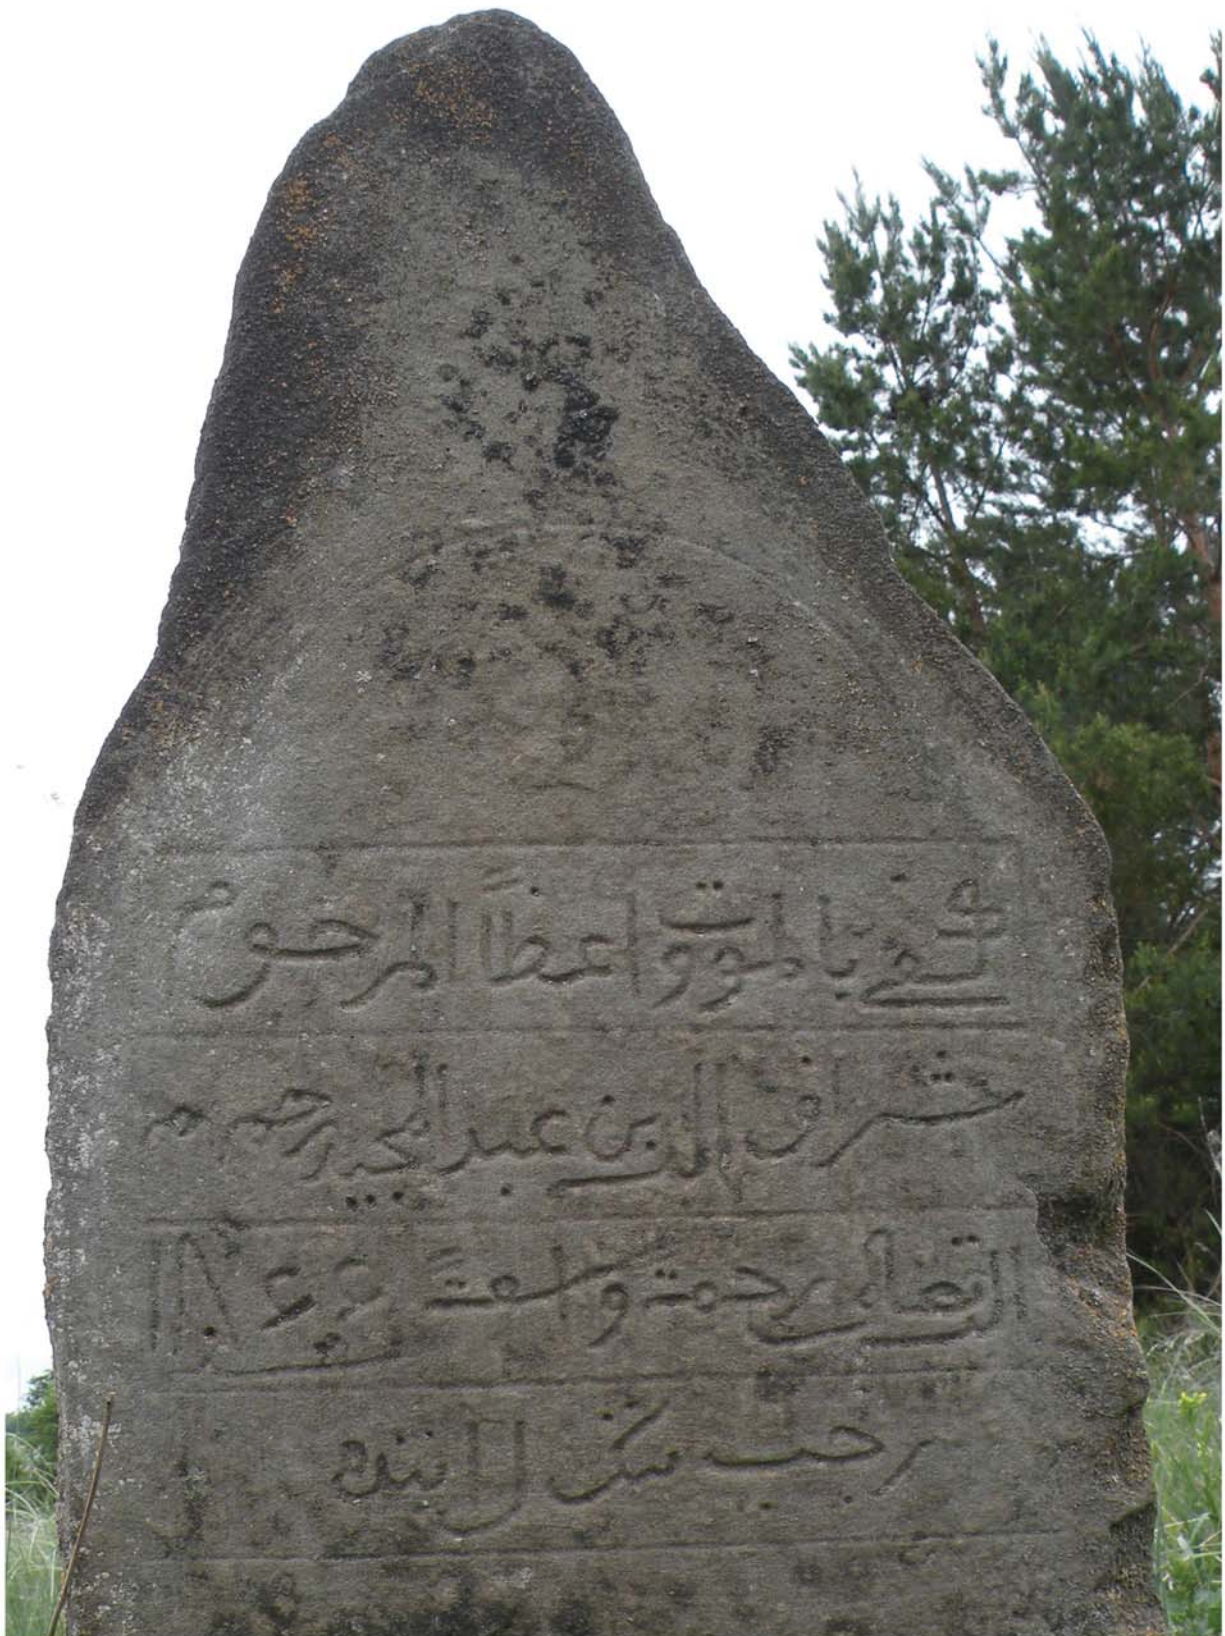 كفى بالموت واعظاً المرحوم
شراف الدين عبد المجيد رحمه م
الله تعالى رحمة واسعة سنة ١٨٦٦
رجب